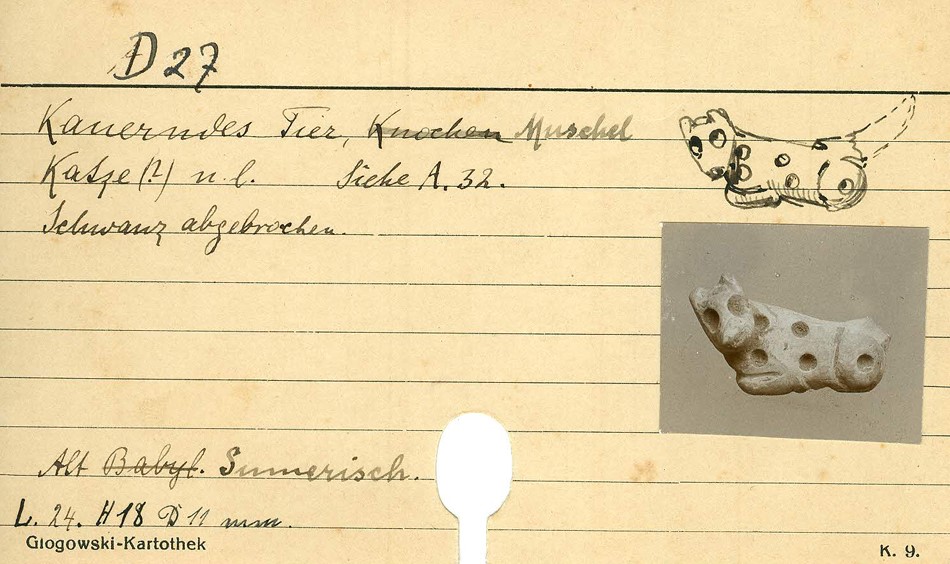 D 27
Kauerndes Tier, Knochen Muschel
Katze (?) n. l. Siehe A. 32.
Schwanz abgebrochen.
Alt Babyl. Sumerisch.
L. 24. H 18 D 11 mm.
Glogowski-Kartothek K. 9.